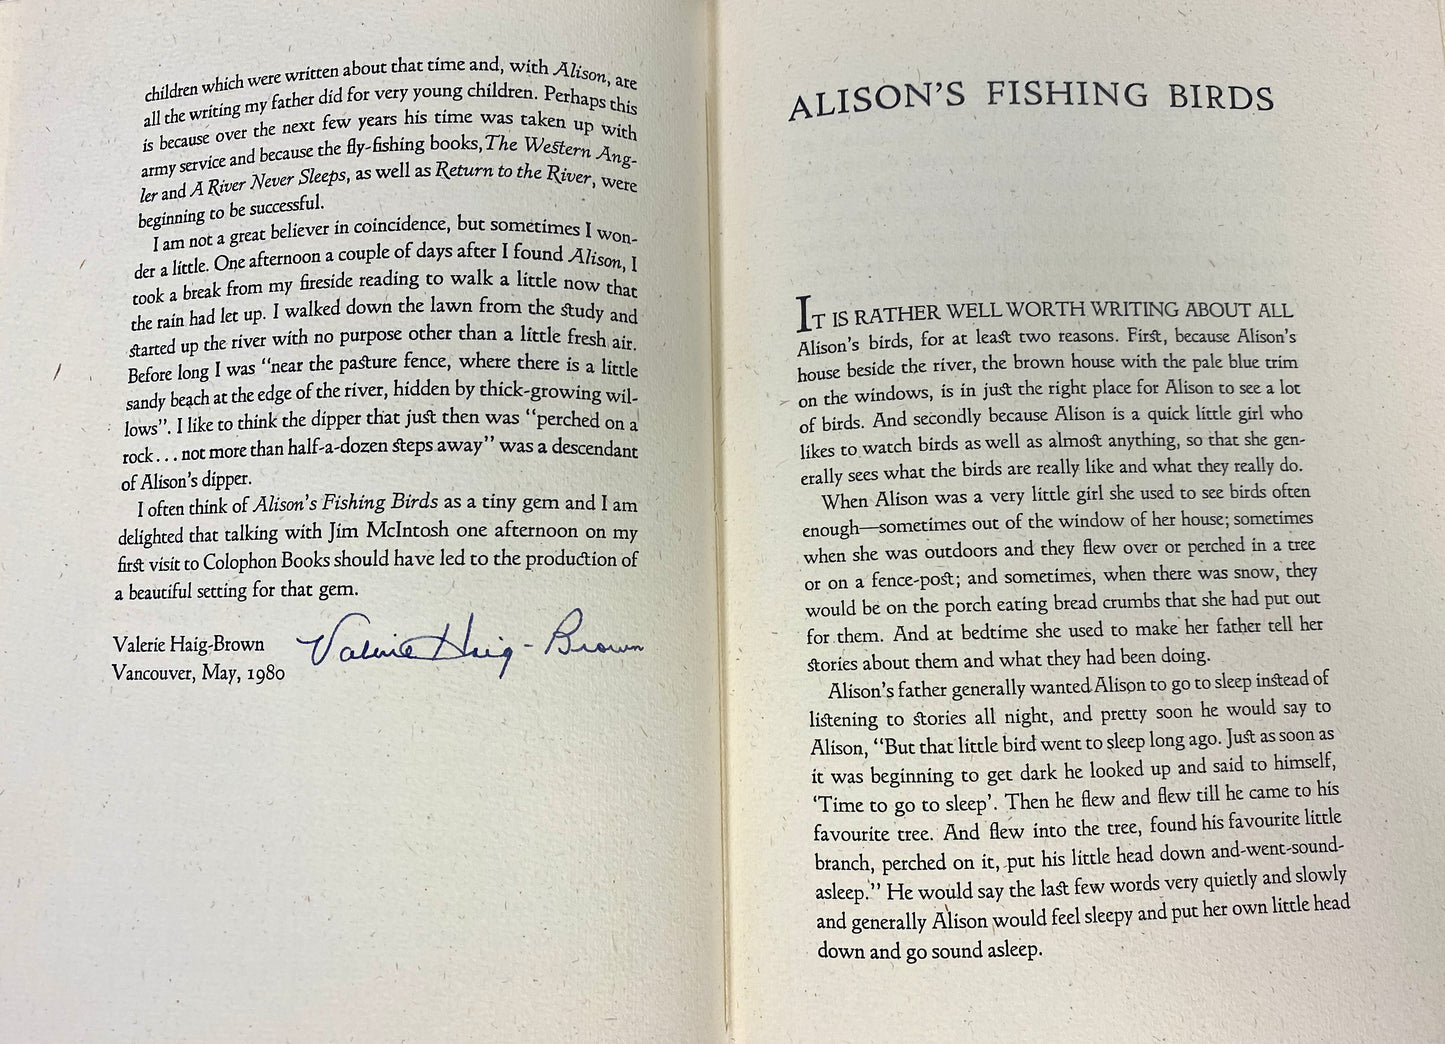 children which were written about that time and, with Alison, are
all the writing my father did for very young children. Perhaps this
is because over the next few years his time was taken up with
army service and because the fly-fishing books, The Western Ang-
ler and A River Never Sleeps, as well as Return to the River, were
beginning to be successful.
I am not a great believer in coincidence, but sometimes I won-
der a little. One afternoon a couple of days after I found Alison, I
took a break from my fireside reading to walk a little now that
the rain had let up. I walked down the lawn from the study and
started up the river with no purpose other than a little fresh air.
Before long I was “near the pasture fence, where there is a little
sandy beach at the edge of the river, hidden by thick-growing wil-
lows”. I like to think the dipper that just then was “perched on a
rock... not more than half-a-dozen steps away” was a descendant
of Alison’s dipper.
I often think of Alison’s Fishing Birds as a tiny gem and I am
delighted that talking with Jim McIntosh one afternoon on my
first visit to Colophon Books should have led to the production of
a beautiful setting for that gem.
Valerie Haig-Brown
Valerie Haig-Brown
Vancouver, May, 1980
ALISON’S FISHING BIRDS
IT IS RATHER WELL WORTH WRITING ABOUT ALL
Alison’s birds, for at least two reasons. First, because Alison’s
house beside the river, the brown house with the pale blue trim
on the windows, is in just the right place for Alison to see a lot
of birds. And secondly because Alison is a quick little girl who
likes to watch birds as well as almost anything, so that she gen-
erally sees what the birds are really like and what they really do.
When Alison was a very little girl she used to see birds often
enough—sometimes out of the window of her house; sometimes
when she was outdoors and they flew over or perched in a tree
or on a fence-post; and sometimes, when there was snow, they
would be on the porch eating bread crumbs that she had put out
for them. And at bedtime she used to make her father tell her
stories about them and what they had been doing.
Alison’s father generally wanted Alison to go to sleep instead of
listening to stories all night, and pretty soon he would say to
Alison, “But that little bird went to sleep long ago. Just as soon as
it was beginning to get dark he looked up and said to himself,
‘Time to go to sleep’. Then he flew and flew till he came to his
favourite tree. And flew into the tree, found his favourite little
branch, perched on it, put his little head down and-went-sound-
asleep.” He would say the last few words very quietly and slowly
and generally Alison would feel sleepy and put her own little head
down and go sound asleep.